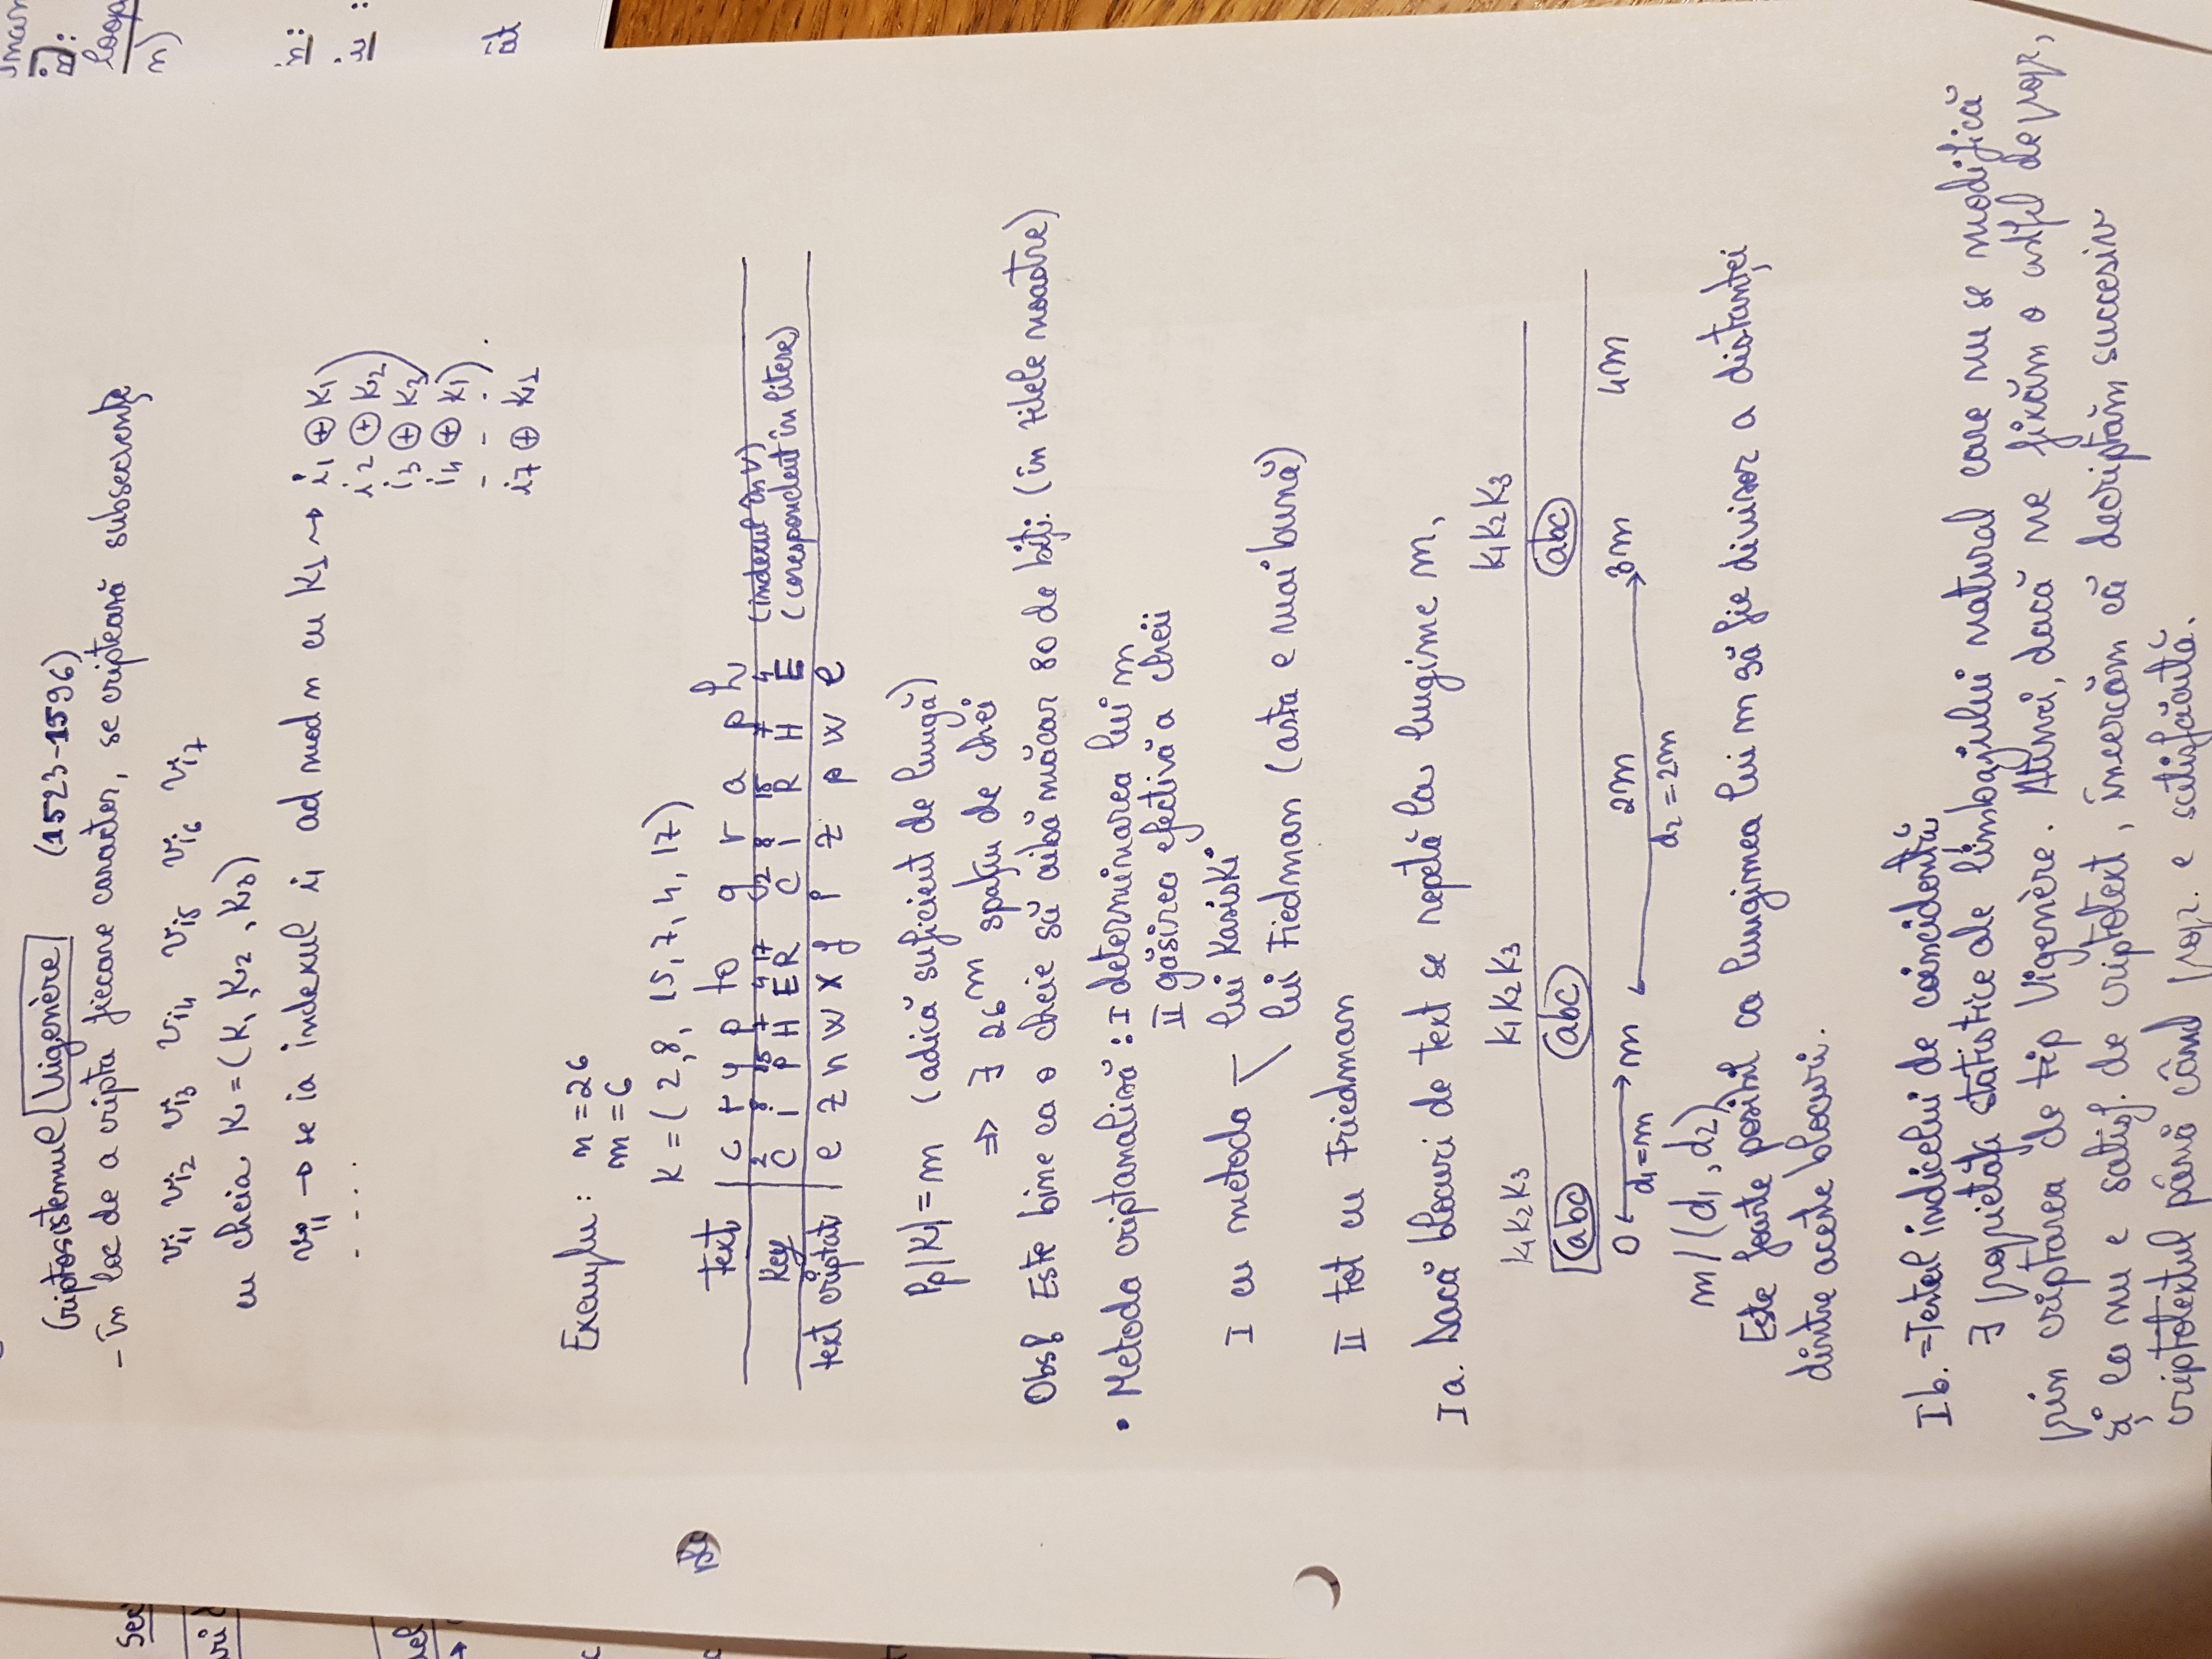 Criptosistemul Vigenère (1523-1596)
- în loc de a cripta fiecare caracter, se criptează subsecvențe
vi1 vi2 vi3 vi4 vi5 vi6 vi7
cu cheia K = (K1, K2, K3)
vi1 → se ia indexul i1 ad mod n cu K1 → i1 ⊕ K1
- - - .
i2 ⊕ K2
i3 ⊕ K3
i4 ⊕ K1
- - - .
i7 ⊕ K1
Exemplu: n = 26
m = 6
K = (2, 8, 15, 7, 4, 17)
text | c r y p t o g r a p h
2 8 15 7 4 17 2 8 15 7 4 (indexul în V)
Key | C I P H E R C I R H E (corespondent în litere)
text criptat | e z n w x f i z p w l
Pp |K| = m (adică suficient de lungă)
⇒ ∃ 26^m spațiu de chei
Obs! Este bine ca o cheie să aibă măcar 80 de biți. (în zilele noastre)
• Metoda criptanaliză: I determinarea lui m
II găsirea efectivă a cheii
I cu metoda - lui Kasiski
\ lui Fiedman (asta e mai bună)
II tot cu Friedman
I a. Dacă blocuri de text se repetă la lungime m,
K1K2K3 K1K2K3 K1K2K3
abc abc abc
0 m 2m 3m 4m
d1=m d2=2m
m/(d1, d2)
Este foarte posibil ca lungimea lui m să fie divisor a distanței
dintre aceste blocuri.
I b. =Testul indicelui de coincidență
∃ proprietăți statistice ale limbajului natural care nu se modifică
prin criptarea de tip Vigenère. Atunci, dacă ne fixăm o astfel de propr,
și ea nu e satisf. de criptotext, încercăm că decriptăm succesiv
criptotextul până când propr. e satisfăcută.